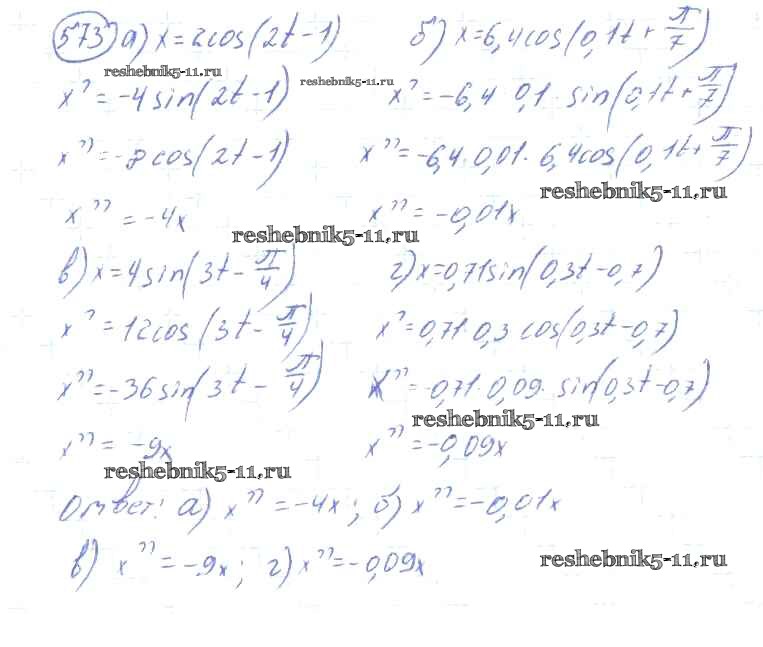 573 а) x=2cos(2t-1) б) x=6,4cos(0,1t+π/7)
reshebnik5-11.ru reshebnik5-11.ru
x'=-4sin(2t-1) x'=-6,4·0,1·sin(0,1t+π/7)
x''=-8cos(2t-1) x''=-6,4·0,01·6,4cos(0,1t+π/7)
reshebnik5-11.ru
x''=-4x x''=-0,01x
reshebnik5-11.ru
в) x=4sin(3t-π/4) г) x=0,71sin(0,3t-0,7)
x'=12cos(3t-π/4) x'=0,71·0,3cos(0,3t-0,7)
x''=-36sin(3t-π/4) x''=-0,71·0,09·sin(0,3t-0,7)
reshebnik5-11.ru
x''=-9x x''=-0,09x
reshebnik5-11.ru
Ответ: а) x''=-4x; б) x''=-0,01x
в) x''=-9x; г) x''=-0,09x
reshebnik5-11.ru